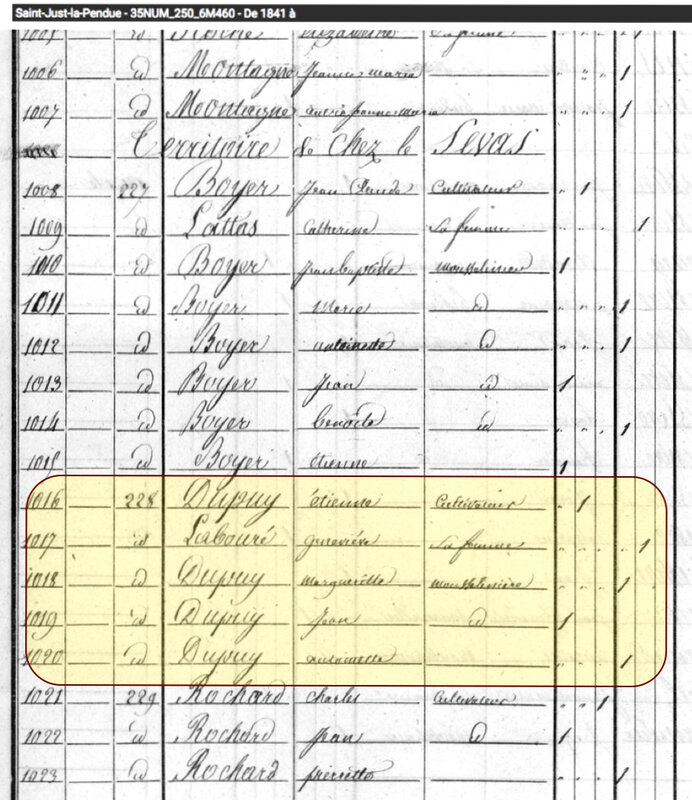 Saint-Just-la-Pendue - 35NUM_250_6M460 - De 1841 à
1005 id sa femme
1006 id Montagne Jeanne marie 1
1007 id Montagne autre Jeanne Marie 1
Territoire de chez le Levas
1008 227 Boyer Jean Claude Cultivateur " 1
1009 id Lattas Catherine Sa femme " " " 1
1010 id Boyer Jean Baptiste mousselinier 1
1011 id Boyer Marie id " " " 1
1012 id Boyer antoinette id " " " 1
1013 id Boyer Jean id 1
1014 id Boyer benoîte id " " " 1
1015 id Boyer étienne 1
1016 228 Dupuy étienne Cultivateur " 1
1017 id Labouré geneviève Sa femme " " " " 1
1018 id Dupuy marguerite mousselinière " " " 1
1019 id Dupuy Jean id 1
1020 id Dupuy antoinette " " " 1
1021 229 Rochard charles Cultivateur " " 1
1022 id Rochard Jean id 1
1023 id Rochard pierrette " " " 1